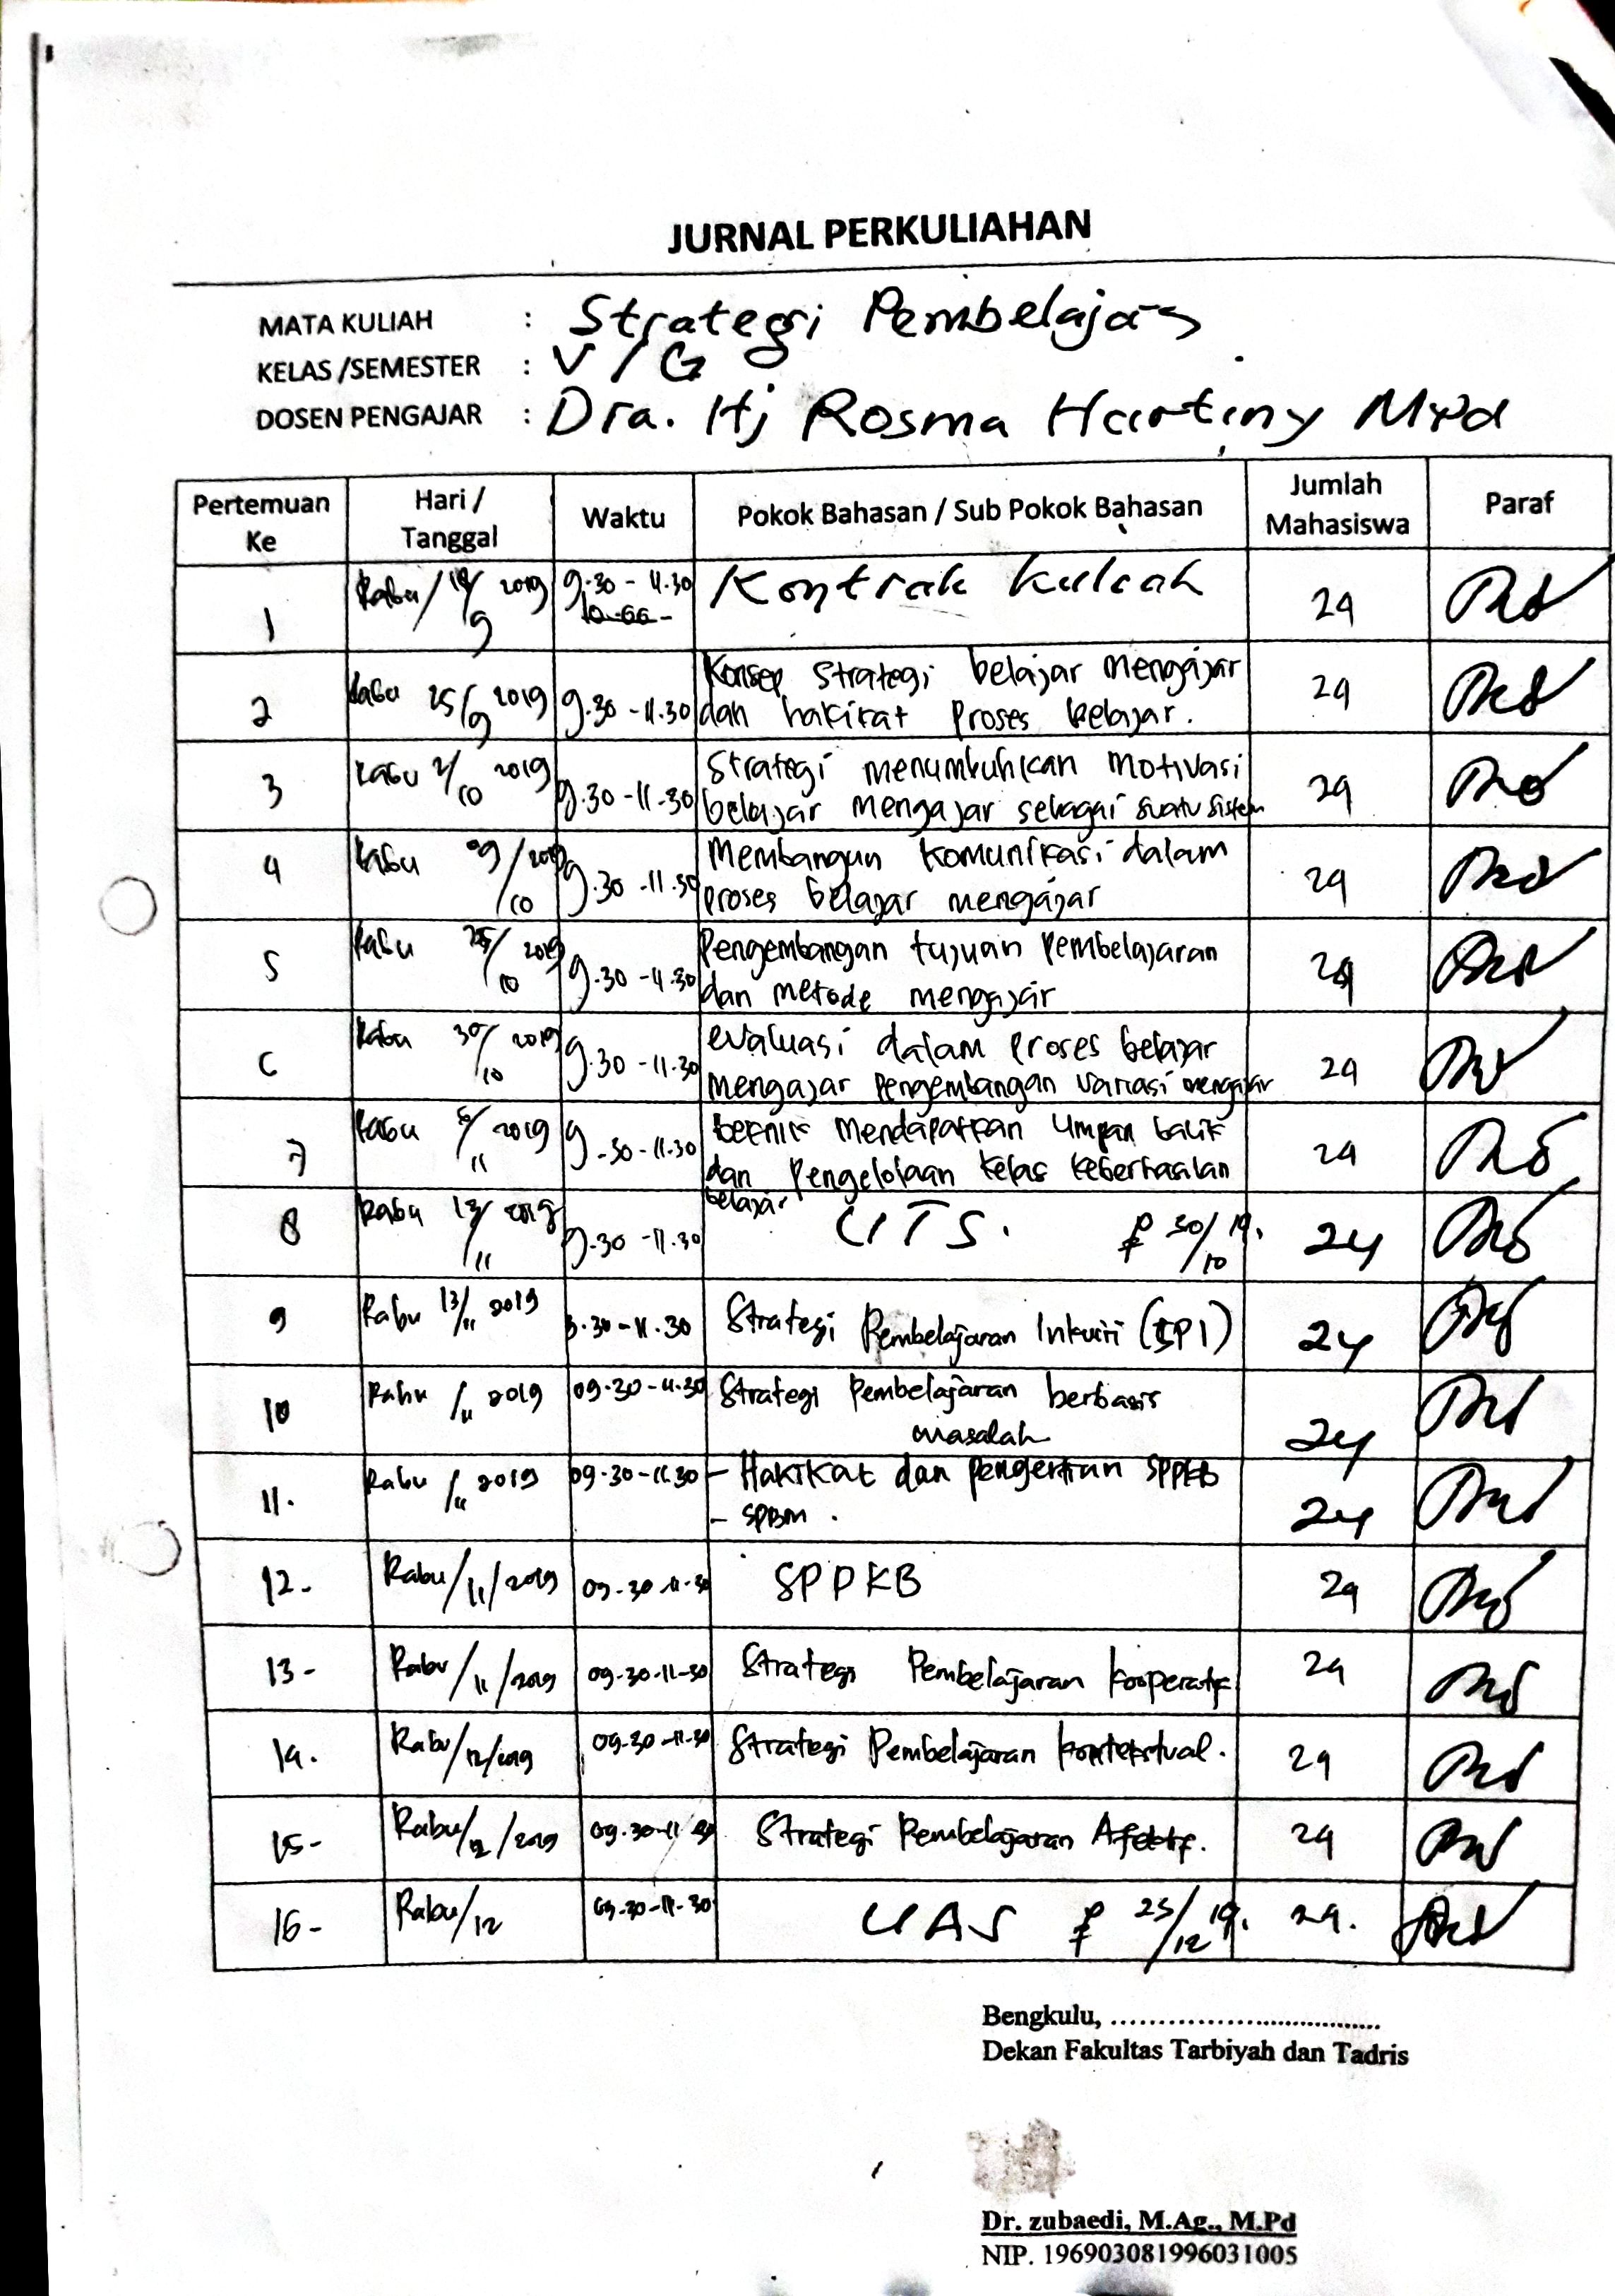 JURNAL PERKULIAHAN
MATA KULIAH : Strategi Pembelajar
KELAS /SEMESTER : V / G
DOSEN PENGAJAR : Dra. Hj Rosma Hartiny Mpd
Pertemuan Ke Hari / Tanggal Waktu Pokok Bahasan / Sub Pokok Bahasan Jumlah Mahasiswa Paraf
1 Rabu / 18/9 2019 9.30 - 11.30 Kontrak Kuliah 24
2 Rabu 25/9 2019 9.30 - 11.30 Konsep strategi belajar mengajar
dan hakikat proses belajar. 24
3 Rabu 2/10 2019 9.30 - 11.30 Strategi menumbuhkan motivasi
belajar mengajar sebagai suatu sistem 24
4 Rabu 09/10 2019 9.30 - 11.30 Membangun komunikasi dalam
proses belajar mengajar 24
5 Rabu /10 2019 9.30 - 11.30 Pengembangan tujuan pembelajaran
dan metode mengajar 24
6 Rabu 30/10 2019 9.30 - 11.30 evaluasi dalam proses belajar
mengajar pengembangan variasi mengajar 24
7 Rabu /11 2019 9.30 - 11.30 teknik mendapatkan umpan balik
dan pengelolaan kelas keberhasilan
belajar 24
8 Rabu 13/11 2019 9.30 - 11.30 UTS. 30/10 19. 24
9 Rabu 13/11 2019 9.30 - 11.30 Strategi Pembelajaran Inkuiri (SPI) 24
10 Rabu /11 2019 09.30 - 11.30 Strategi Pembelajaran berbasis
masalah 24
11. Rabu /11 2019 09.30 - 11.30 - Hakikat dan pengertian SPPKB
- SPBM . 24
12- Rabu/11/2019 09-30-11-30 SPPKB 24
13- Rabu/11/2019 09-30-11-30 Strategi Pembelajaran kooperatif 24
14. Rabu/12/2019 09-30-11-30 Strategi Pembelajaran kontekstual. 24
15- Rabu/12/2019 09.30-11 30 Strategi Pembelajaran Afektif. 24
16- Rabu/12 09-30-11-30 UAS 25/12 19. 24.
Bengkulu, ..................................
Dekan Fakultas Tarbiyah dan Tadris
Dr. zubaedi, M.Ag., M.Pd
NIP. 196903081996031005